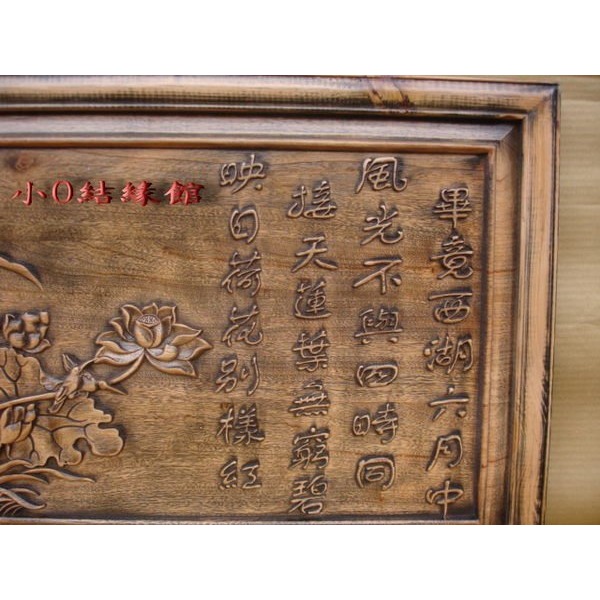 畢竟西湖六月中
風光不與四時同
接天蓮葉無窮碧
映日荷花別樣紅
小O結緣館